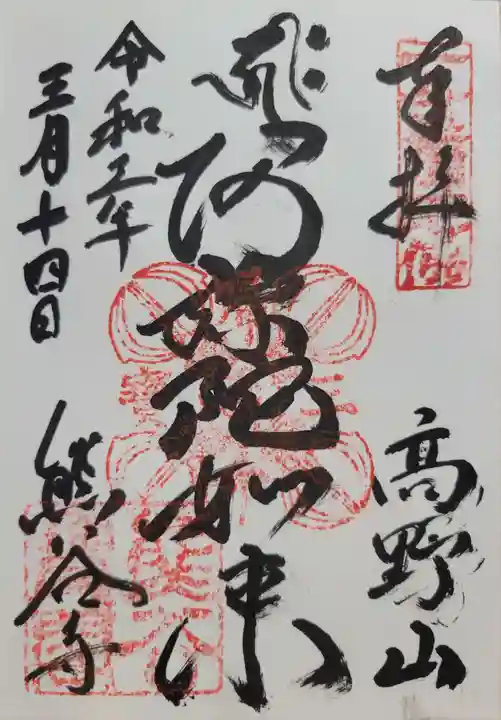 奉拝
高野山
阿弥陀如来
令和五年
三月十四日
熊谷寺